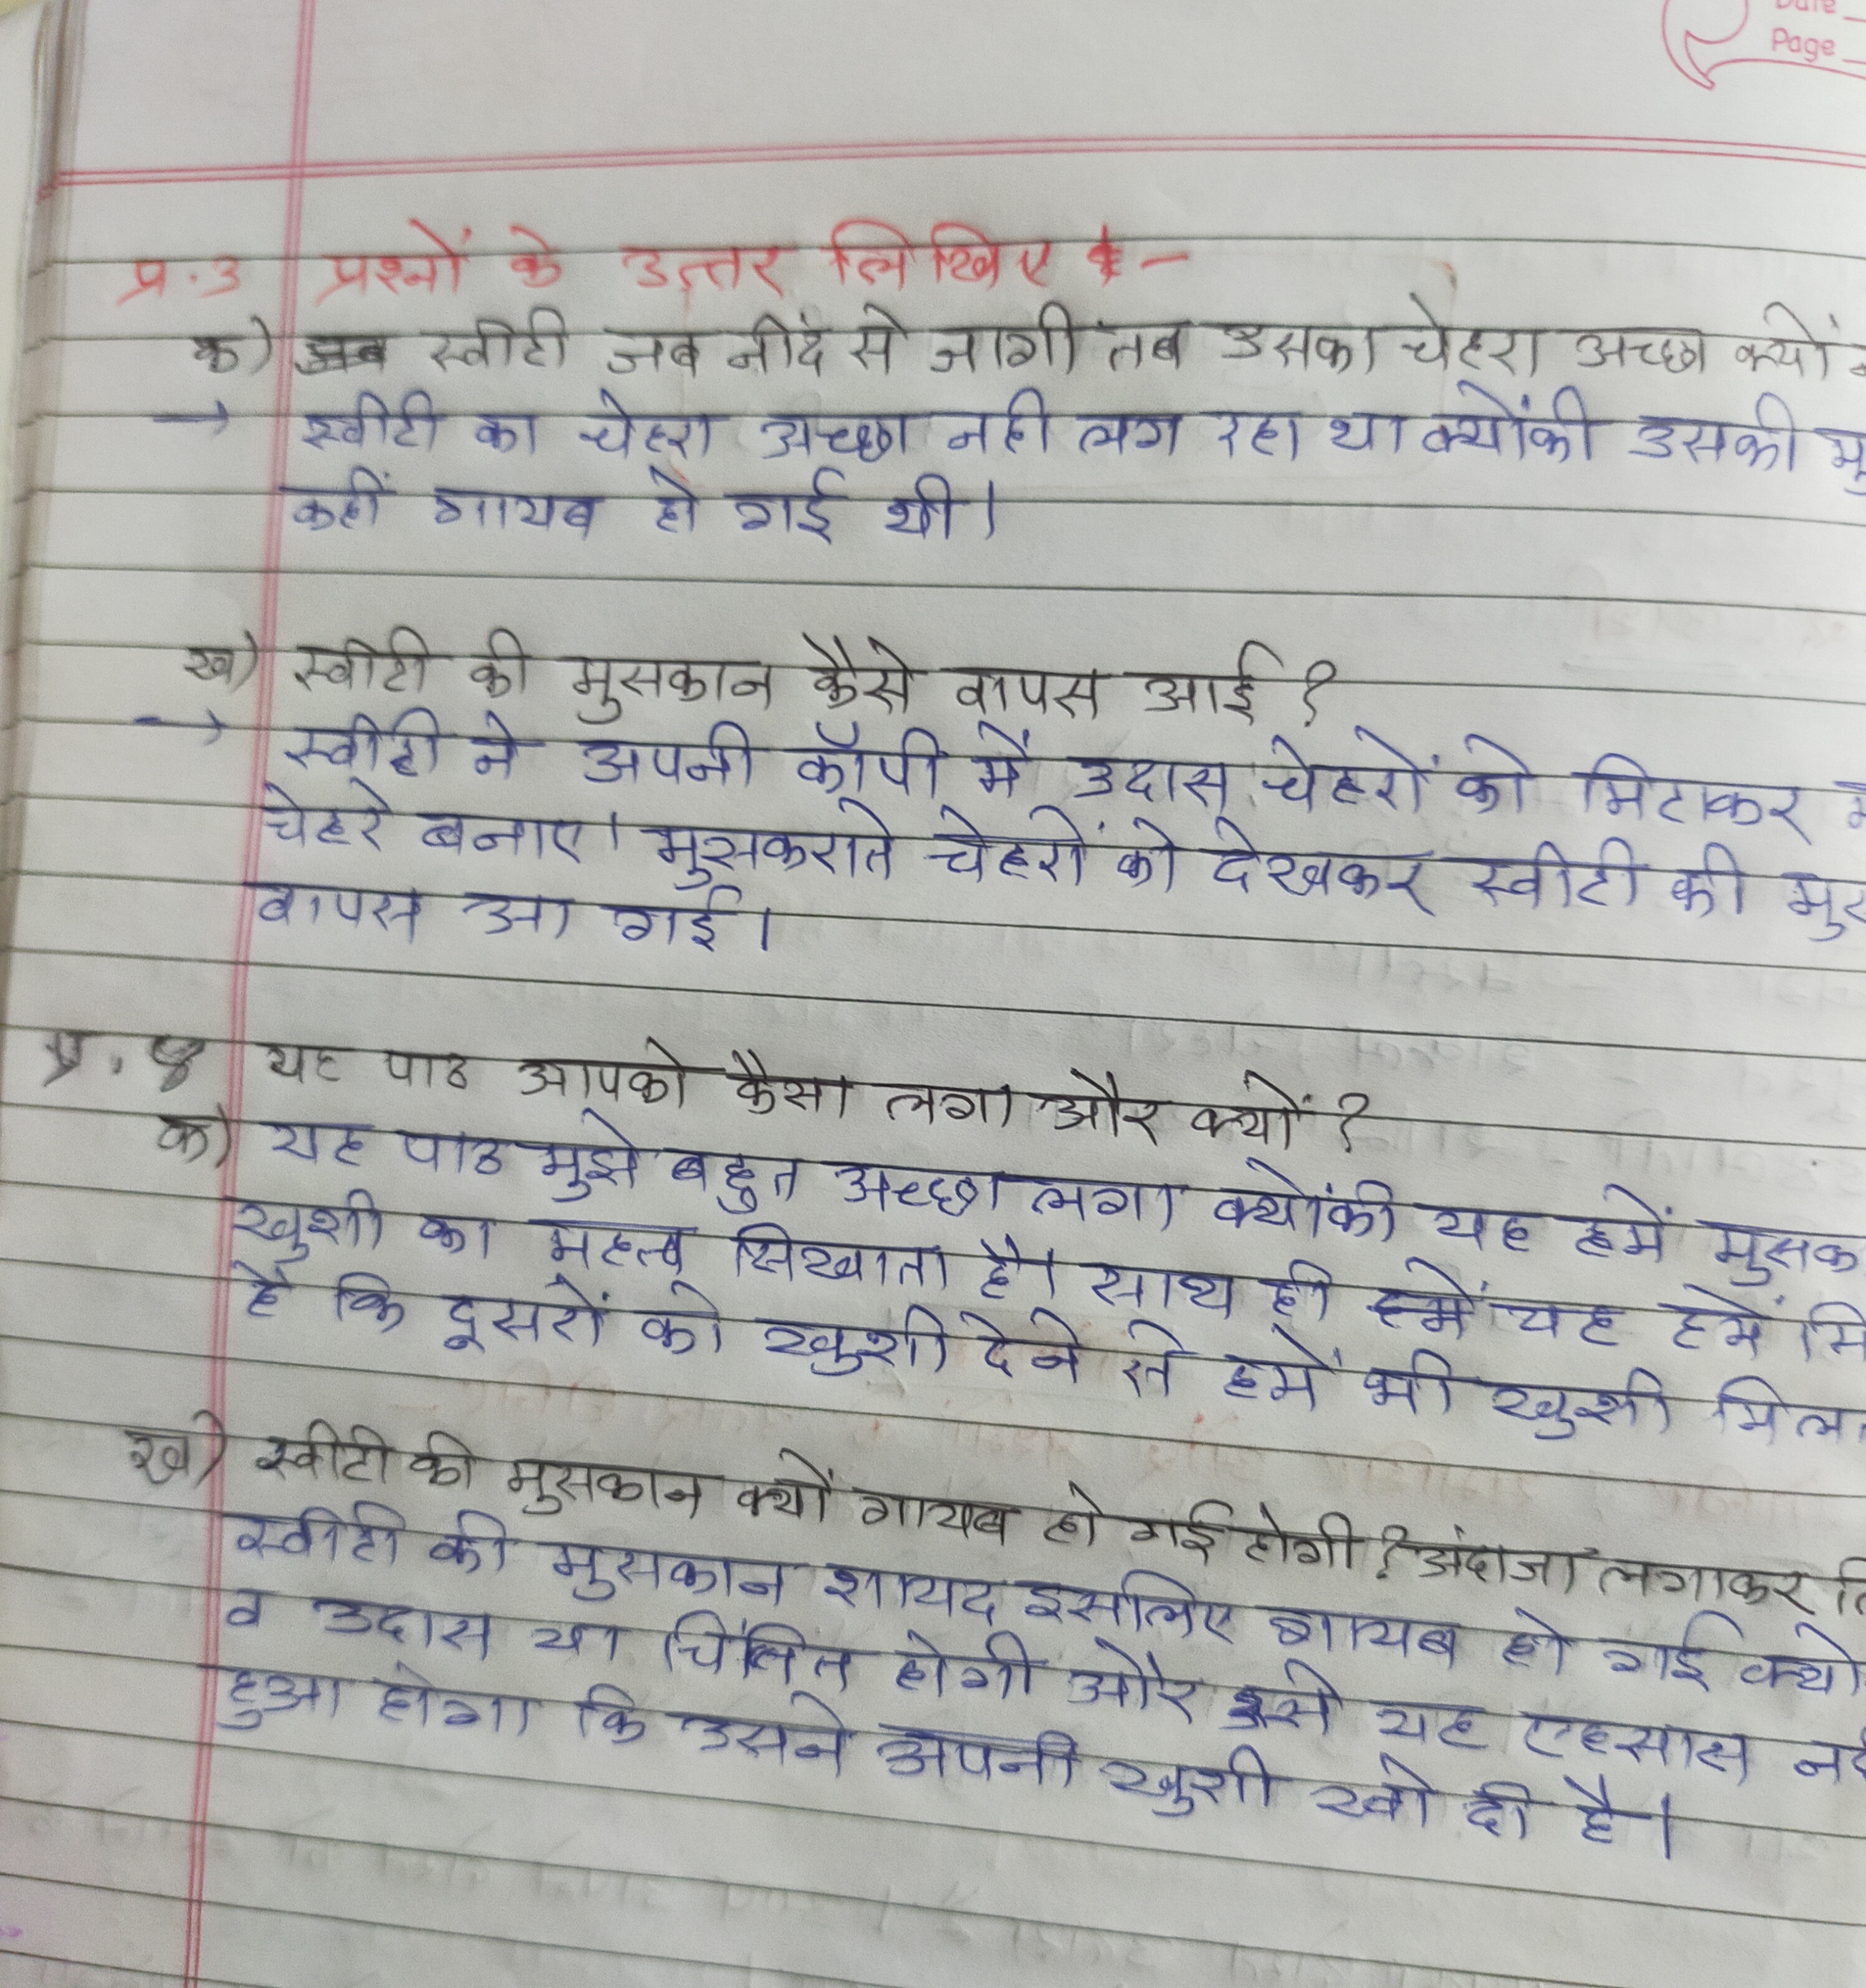 Date
Page
प्र.3 प्रश्नों के उत्तर लिखिए :-
क) स्वीटी जब नींद से जागी तब उसका चेहरा अच्छा क्यों
→ स्वीटी का चेहरा अच्छा नही लग रहा था क्योंकी उसकी मु
कहीं गायब हो गई थी।
ख) स्वीटी की मुसकान कैसे वापस आई ?
→ स्वीटी ने अपनी कॉपी में उदास चेहरों को मिटाकर
चेहरे बनाए। मुसकराते चेहरों को देखकर स्वीटी की मुस
वापस आ गई।
प्र. 4 यह पाठ आपको कैसा लगा और क्यों ?
क) यह पाठ मुझे बहुत अच्छा लगा क्योंकी यह हमें मुसक
खुशी का महत्व सिखाता है। साथ ही यह हमें सि
है कि दूसरों को खुशी देने से हमें भी खुशी मिल
ख) स्वीटी की मुसकान क्यों गायब हो गई होगी ? अंदाजा लगाकर लि
स्वीटी की मुसकान शायद इसलिए गायब हो गई क्यो
व उदास या चिंतित होगी और उसे यह एहसास नह
हुआ होगा कि उसने अपनी खुशी खो दी है।